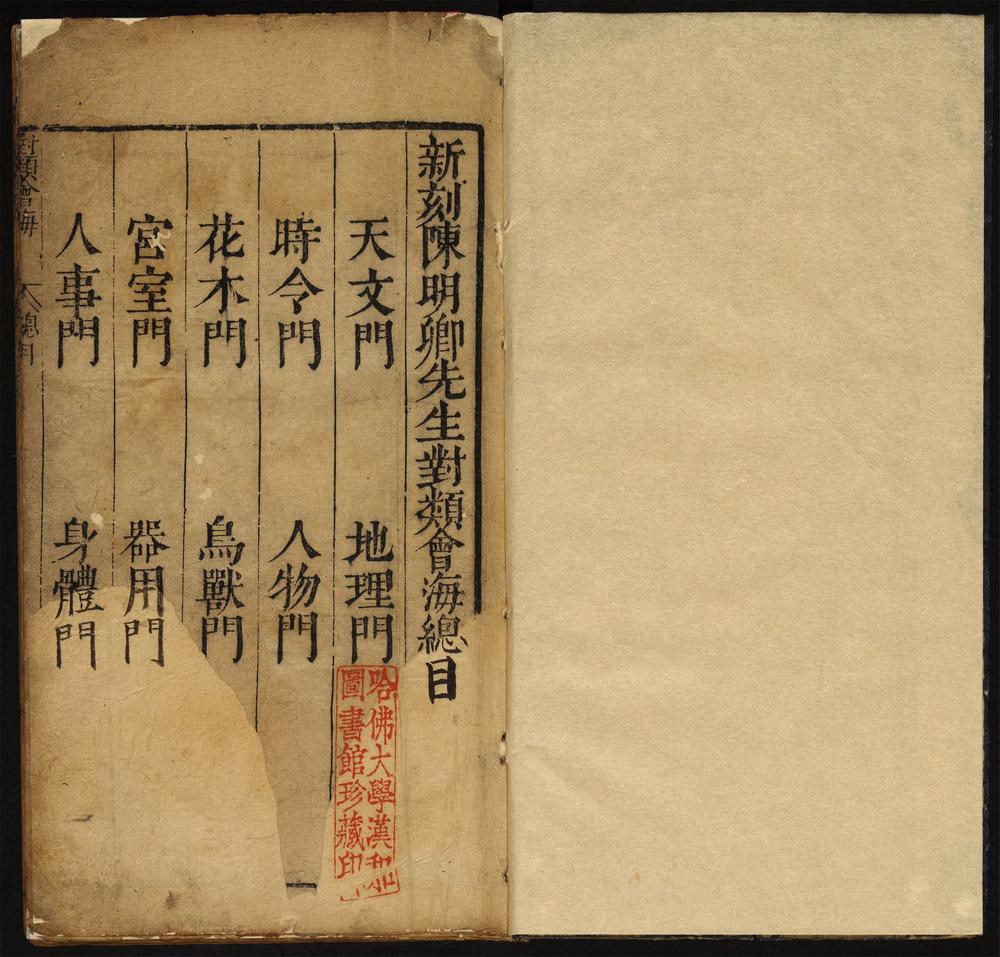 新刻陳明卿先生對類會海總目
天文門 地理門
時令門 人物門
花木門 鳥獸門
宮室門 器用門
人事門 身體門
對類會海 總目
哈佛大學漢和
圖書館珍藏印